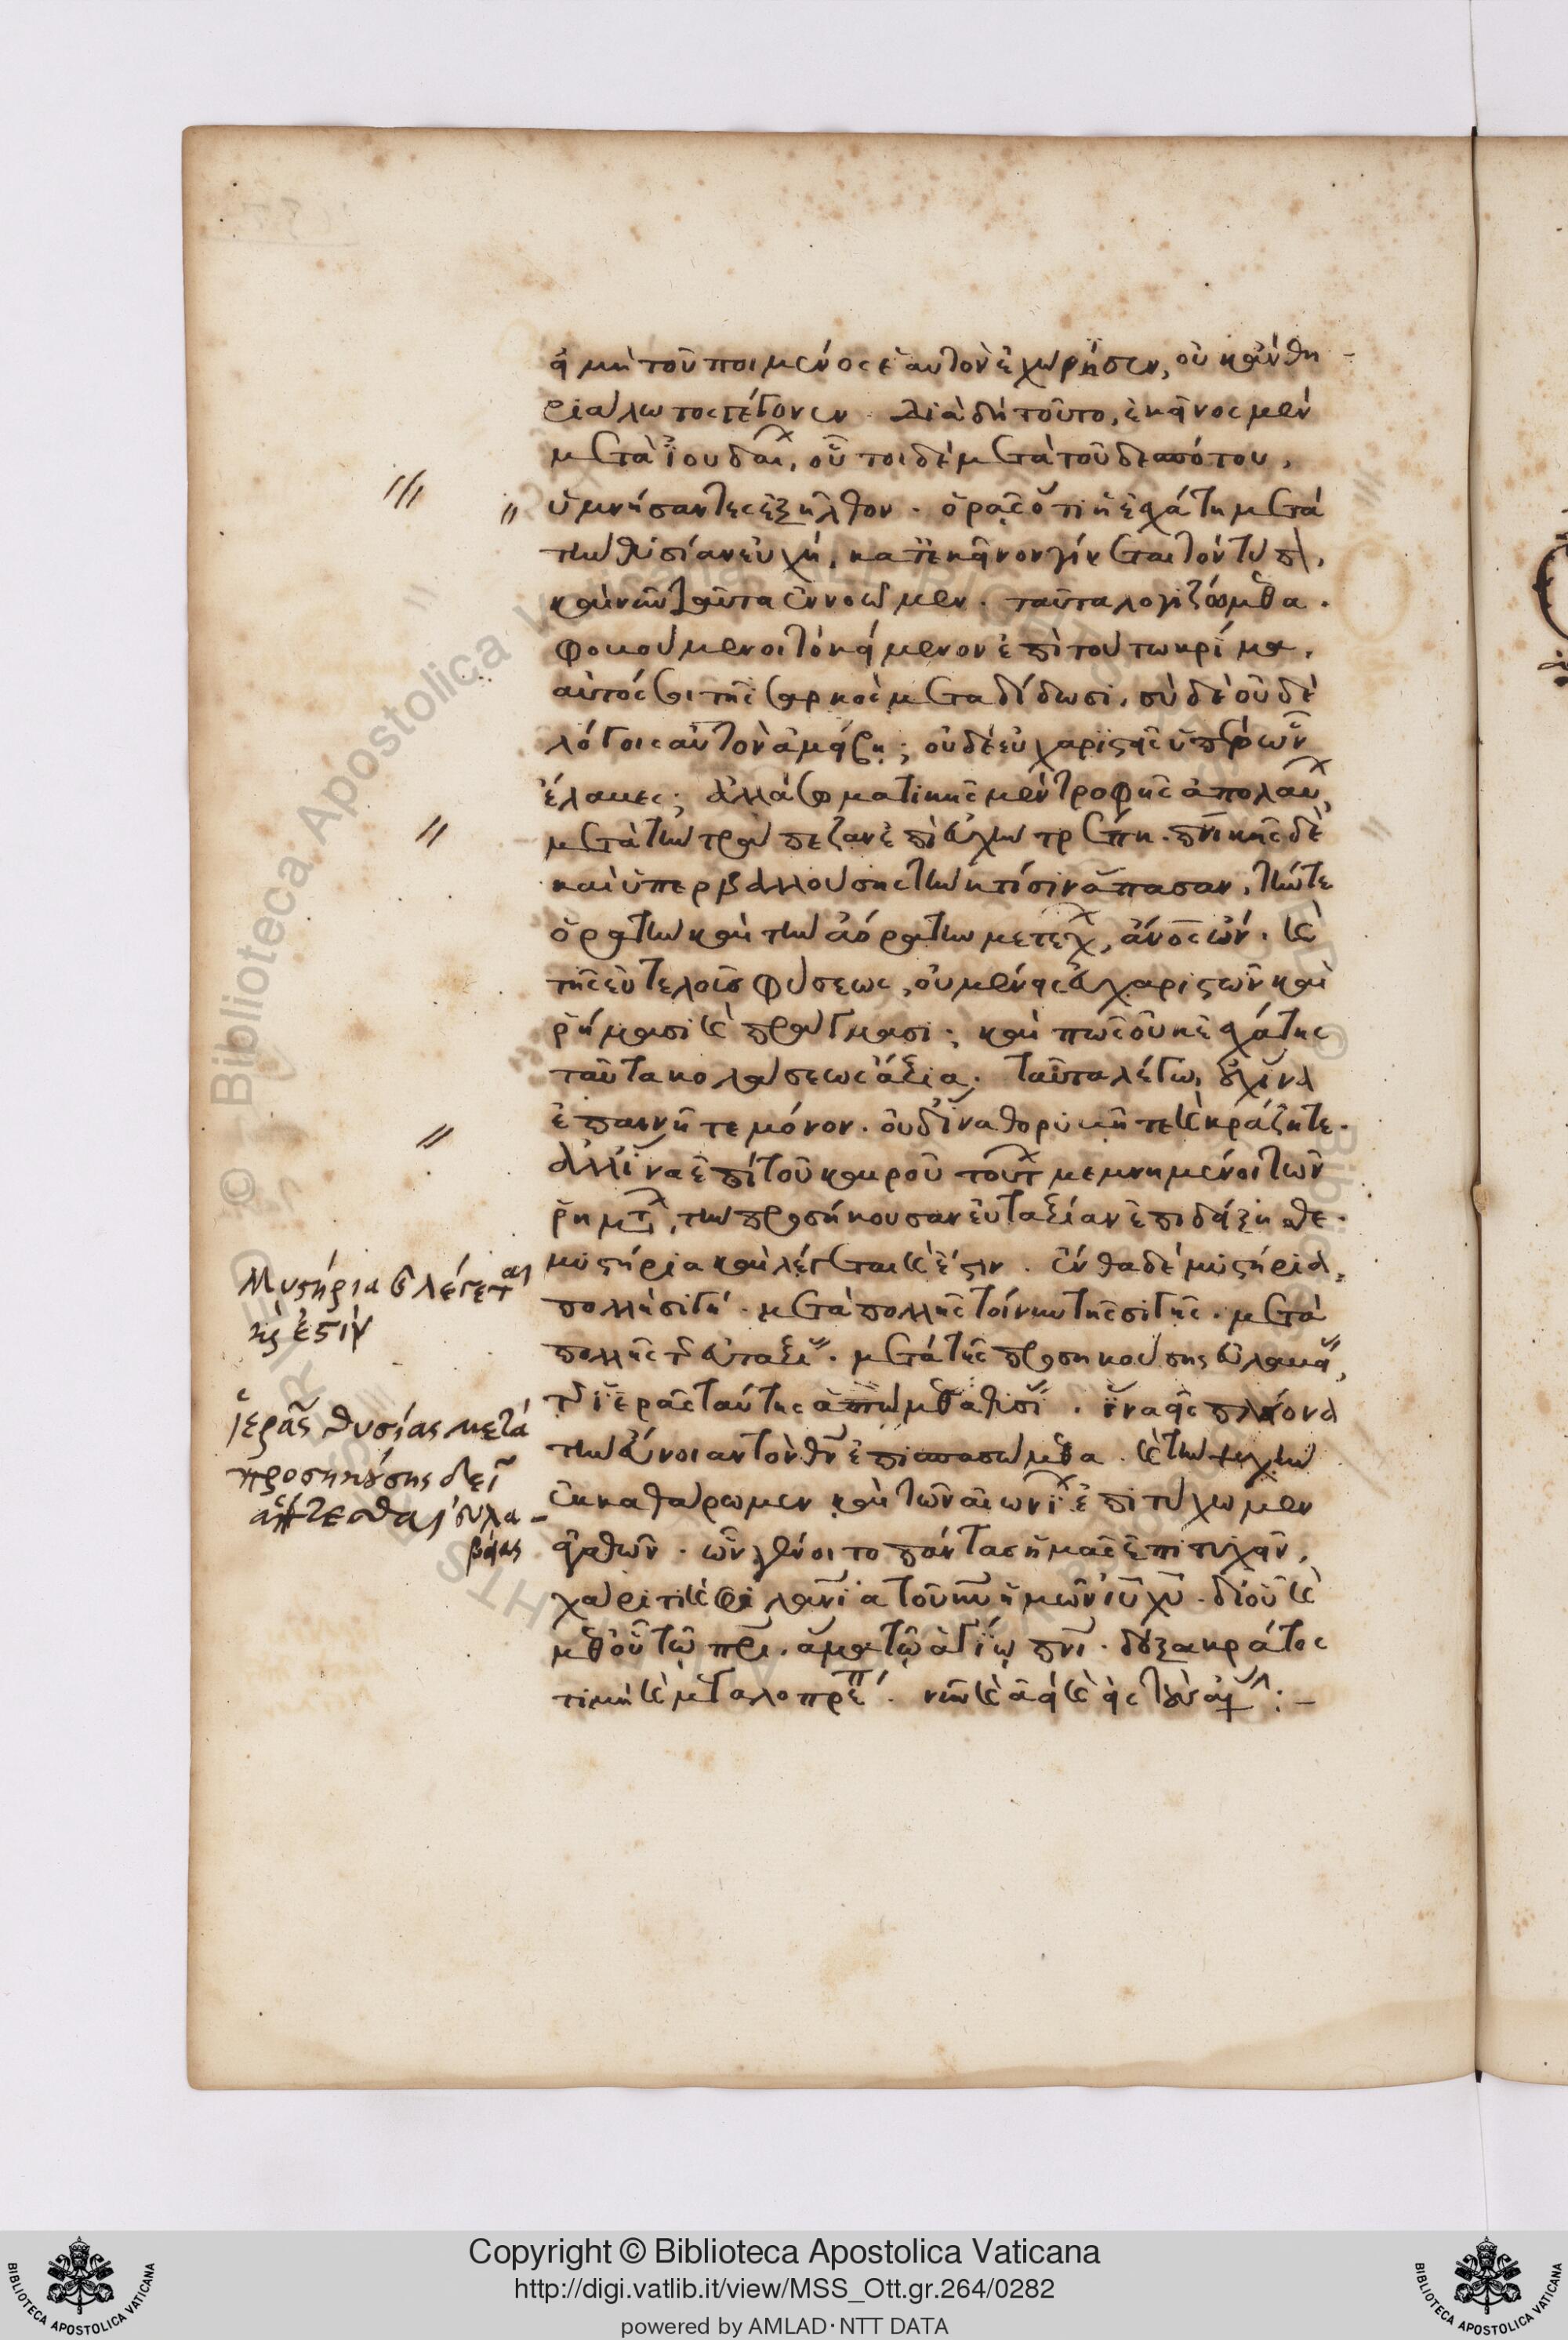 εἰ μὴ τοῦ ποιμένος ἑαυτὸν ἐχώρησεν, οὐκ ἂν θη-
ριάλωτος γέγονεν. Διὰ δὴ τοῦτο, ἐκεῖνος μὲν
μετὰ Ἰουδαί, οὗτοι δὲ μετὰ τοῦ δεσπότου,
ὑμνήσαντες ἐξῆλθον. ὁρᾷς ὅτι ἡ ἐσχάτη μετὰ
τὴν θυσίαν εὐχὴ, κατ' ἐκεῖνον γίνεται τὸν τύπ,
καὶ νῦν ταῦτα ἐννοῶμεν. ταῦτα λογιζώμεθα.
φοβούμενοι τὸ κείμενον ἐπὶ τούτω κρίμα.
αὐτός σοι τῆς σαρκὸς μεταδίδωσι, σὺ δὲ οὐδὲ
λόγοις αὐτὸν ἀμείβῃ; οὐδὲ εὐχαριστεῖς ὑπὲρ ὧν
ἔλαβες; ἀλλὰ σωματικῆς μὲν τροφῆς ἀπολαύ,
μετὰ τὴν τράπεζαν ἐπὶ εὐχὴν τρέπῃ. πνικῆς δὲ
καὶ ὑπερβαλλούσης τὴν κτίσιν ἅπασαν, τήν τε
ὁρατὴν καὶ τὴν ἀόρατην μετέχ, ἄνος ὢν. καὶ
τῆς εὐτελοῦς φύσεως, οὐ μένεις εὐχαριστῶν καὶ
ῥήμασι καὶ πράγμασι; καὶ πῶς οὐκ ἐσχάτης
ταῦτα κολάσεως ἄξια; ταῦτα λέγω, οὐχ ἵνα
ἐπαινῆτε μόνον. οὐδ' ἵνα θορυβῆτε καὶ κράζητε.
ἀλλ' ἵνα ἐπὶ τοῦ καιροῦ τούτ μεμνημένοι τῶν
ῥημτ, τὴν προσήκουσαν εὐταξίαν ἐπιδείξησθε.
μυστήρια καὶ λέγεται καὶ ἔστιν. ἔνθα δὲ μυστήρια,
πολλὴ σιγή. μετὰ πολλῆς τοίνυν τῆς σιγῆς. μετὰ
πολλῆς τῆς εὐταξί. μετὰ τῆς προσηκούσης εὐλαβεί,
τῆς ἱερᾶς ταύτης ἁπτώμεθα θυσί. ἵνα εἰς πλείονα
τὴν εὔνοιαν τὸν θν ἐπισπασώμεθα. καὶ τὴν ψυχὴν
ἐκκαθάρωμεν καὶ τῶν αἰωνί ἐπιτύχωμεν
ἀγαθῶν. ὧν γένοιτο πάντας ἡμᾶς ἐπιτυχεῖν,
χάριτι καὶ φιλανία τοῦ κυ ἡμῶν ιυ χυ. δι' οὗ καὶ
μεθ' οὗ τῶ πρι, ἅμα τῶ ἁγίω πνι. δόξα κράτος
τιμὴ καὶ μεγαλοπρέπ. νῦν καὶ ἀεὶ καὶ εἰς τοὺς αἰ ἀμ:-
Μυστήρια καὶ λέγεται
καὶ ἐστίν
Ἱερᾶς θυσίας μετὰ
προσηκούσης δεῖ
ἅπτεσθαι εὐλα-
βείας
Copyright © Biblioteca Apostolica Vaticana
http://digi.vatlib.it/view/MSS_Ott.gr.264/0282
powered by AMLAD·NTT DATA
BIBLIOTECA APOSTOLICA VATICANA
BIBLIOTECA APOSTOLICA VATICANA